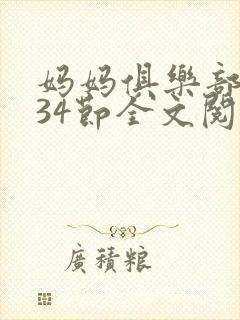 妈妈俱樂部
34節全文閱
廣積粮